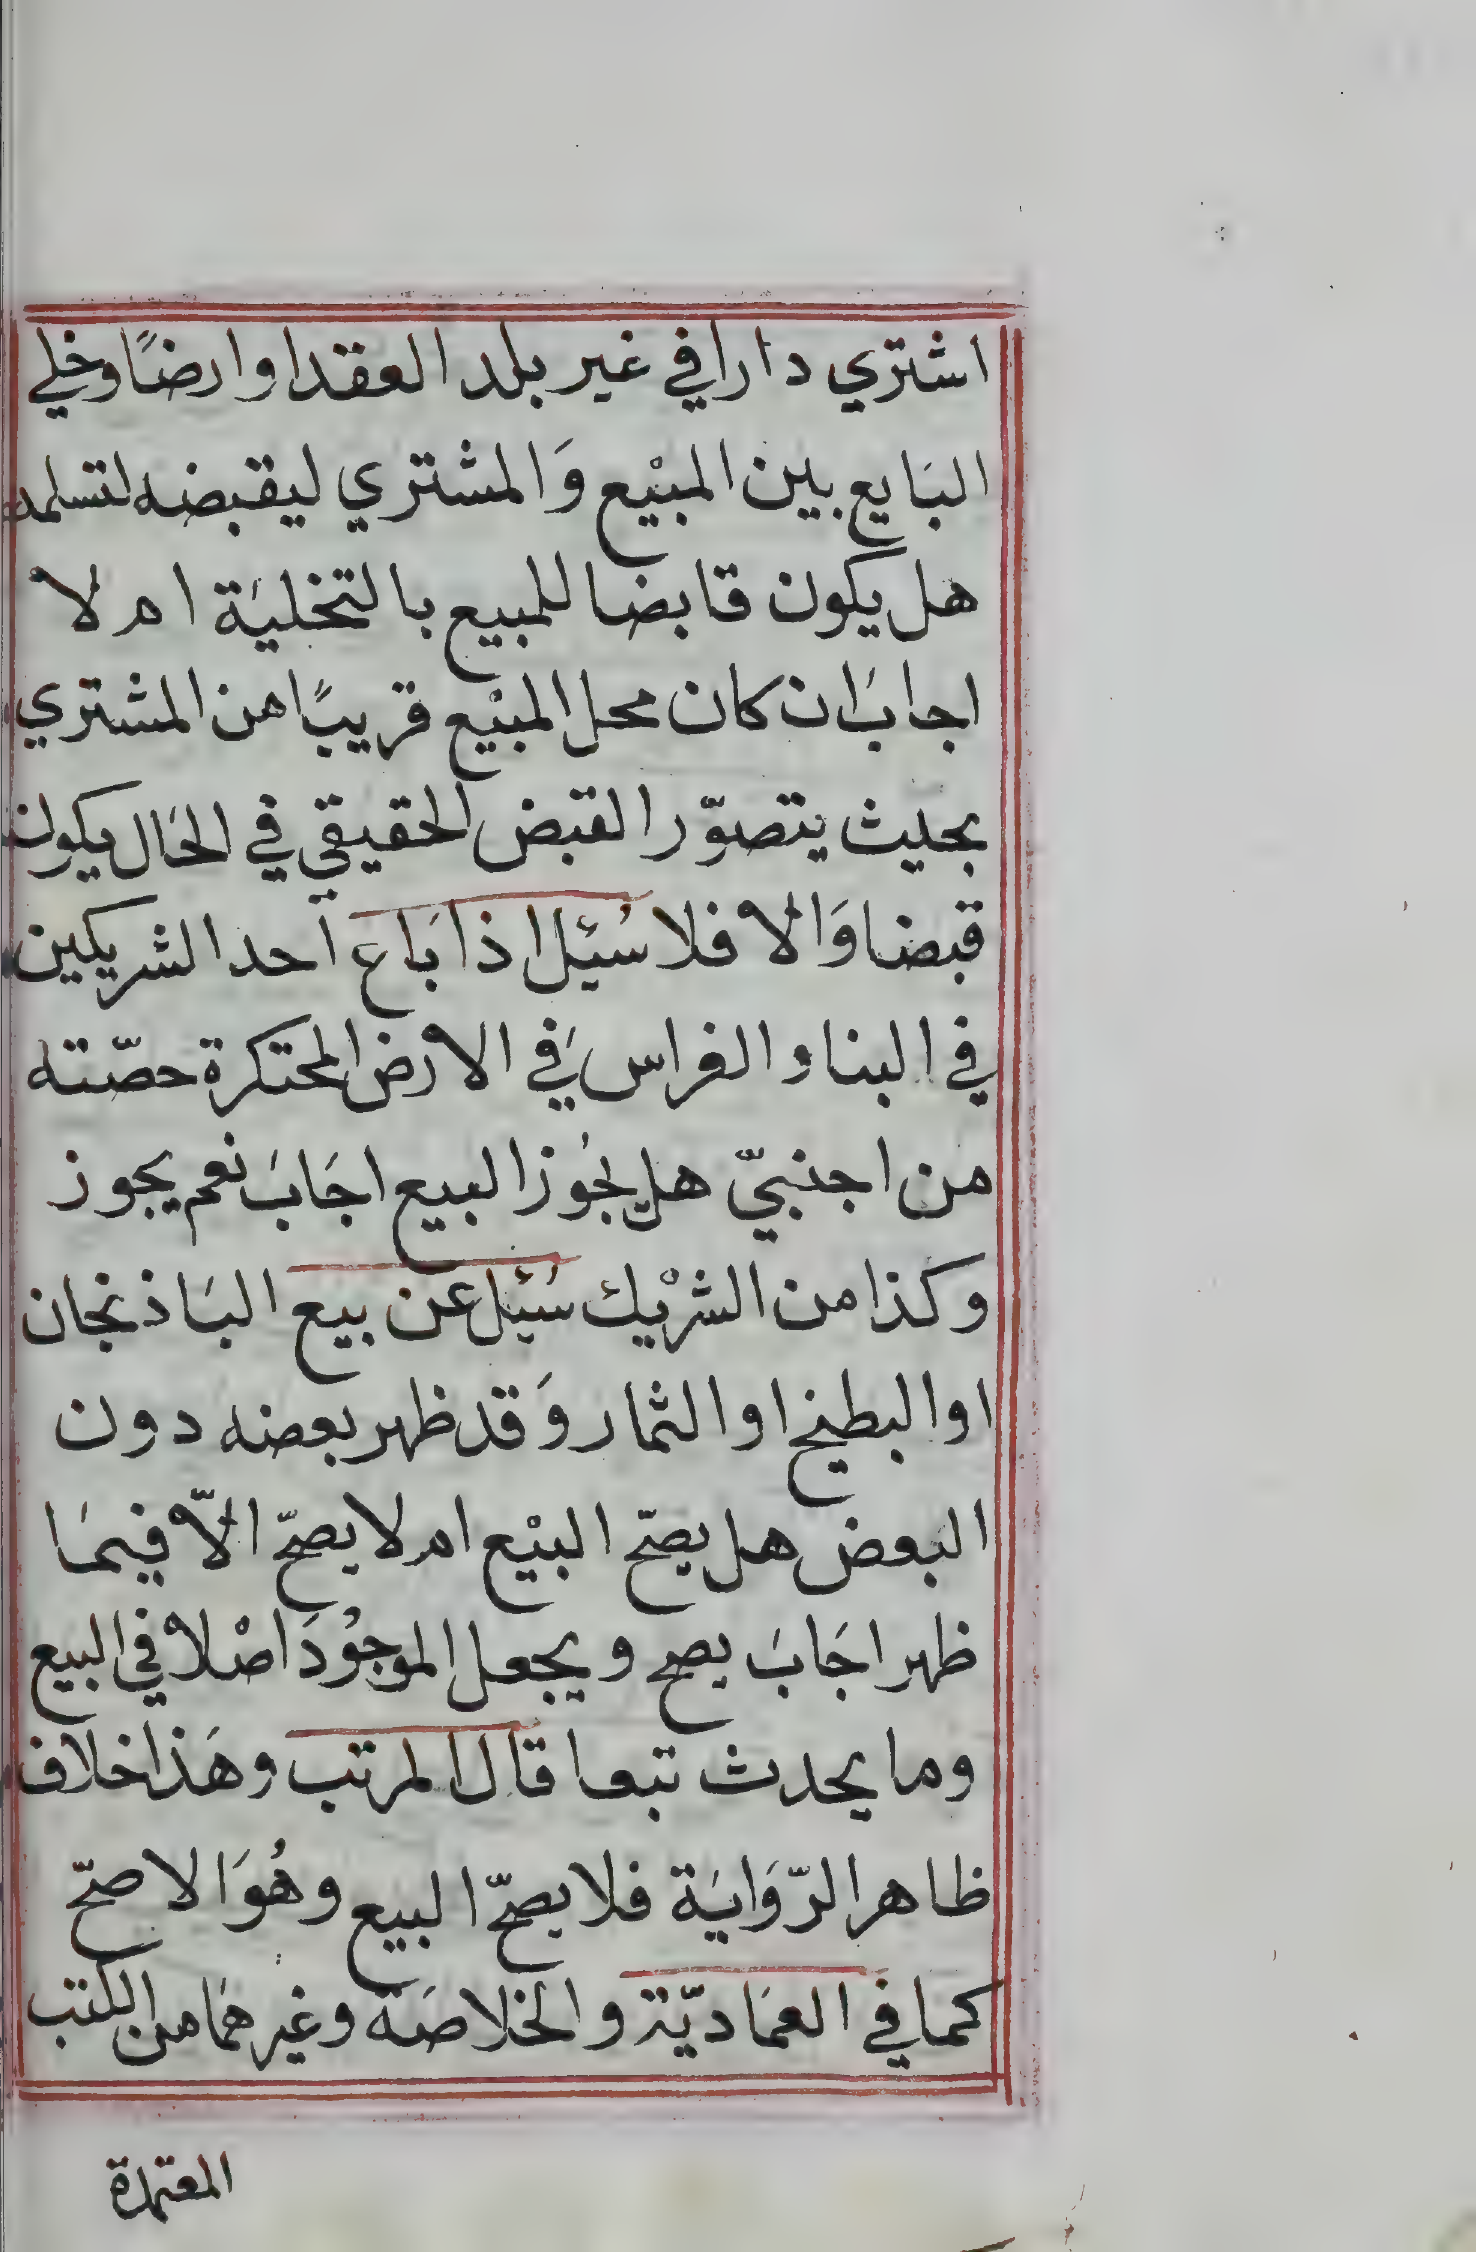 اشتري دارا في غير بلد العقد او ارضًا وخلي
البَايع بين المبيْع وَالمشتري ليقبضه لتسلمه
هل يكون قابضا للمبيع بالتخليَة ام لا
اجابَ ان كان محل المبيْع قريبًا من المشتري
بحيث يتصوّر القبض الحقيقي في الحَال يكون
قبضا وَالا فلا سُئل اذا بَاع احد الشريكين
في البناء والغراس في الارض المحتكرة حصّته
من اجنبيّ هل يجُوز البيع اجَابَ نعم يجوز
وكذا من الشرْيك سُئل عن بيع البَاذنجان
او البطيخ او الثمار وَقد ظهر بعضه دون
البَعض هل يصحّ البيْع ام لا يصحّ الاّ فيمَا
ظهر اجَابَ يصح ويجعل الموجُودَ اصْلا في البيع
وما يحدث تبعا قالَ المرتب وهَذا خلاف
ظاهر الرّوَايَة فلا يصحّ البيع وهُوَ الاصحّ
كما في العمَاديّة والخلاصَة وغيرهمَا من الكتب
المعتمدة